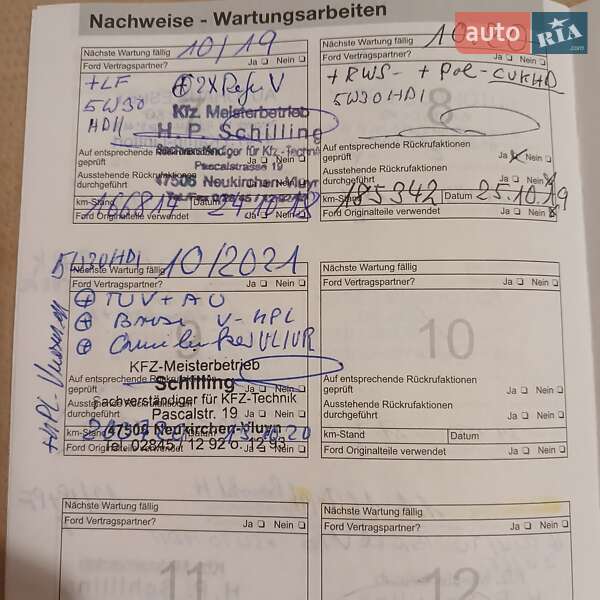 Nachweise - Wartungsarbeiten
auto RIA .com
Nächste Wartung fällig 10/19
Ford Vertragspartner? Ja Nein
+LF + 2x
5W30
HD11
Kfz. Meisterbetrieb
H. P. Schilling
Sachverständiger für Kfz.-Technik
Pascalstrasse 19
47506 Neukirchen-Vluyn
Auf entsprechende Rückrufaktionen
geprüft
Ausstehende Rückrufaktionen
durchgeführt
km-Stand 166814 Datum 24.10.18
Ford Originalteile verwendet Ja Nein
Nächste Wartung fällig
Ford Vertragspartner? Ja Nein
+RWS- + Pol-
5W30HD1
8
Auf entsprechende Rückrufaktionen
geprüft Ja Nein
Ausstehende Rückrufaktionen
durchgeführt Ja Nein
km-Stand 185342 Datum 25.10.19
Ford Originalteile verwendet Ja Nein
5W30HD1
Nächste Wartung fällig 10/2021
Ford Vertragspartner? Ja Nein
+ TÜV + AU
+
+
9
KFZ-Meisterbetrieb
Schilling
Sachverständiger für KFZ-Technik
Pascalstr. 19
47506 Neukirchen-Vluyn
Tel. 02845 / 12 92 o. 12 93
Auf entsprechende Rückrufaktionen
geprüft Ja Nein
Ausstehende Rückrufaktionen
durchgeführt Ja Nein
km-Stand Datum
Ford Originalteile verwendet Ja Nein
Nächste Wartung fällig
Ford Vertragspartner? Ja Nein
10
Auf entsprechende Rückrufaktionen
geprüft Ja Nein
Ausstehende Rückrufaktionen
durchgeführt Ja Nein
km-Stand Datum
Ford Originalteile verwendet Ja Nein
Nächste Wartung fällig
Ford Vertragspartner? Ja Nein
11
Nächste Wartung fällig
Ford Vertragspartner? Ja Nein
12